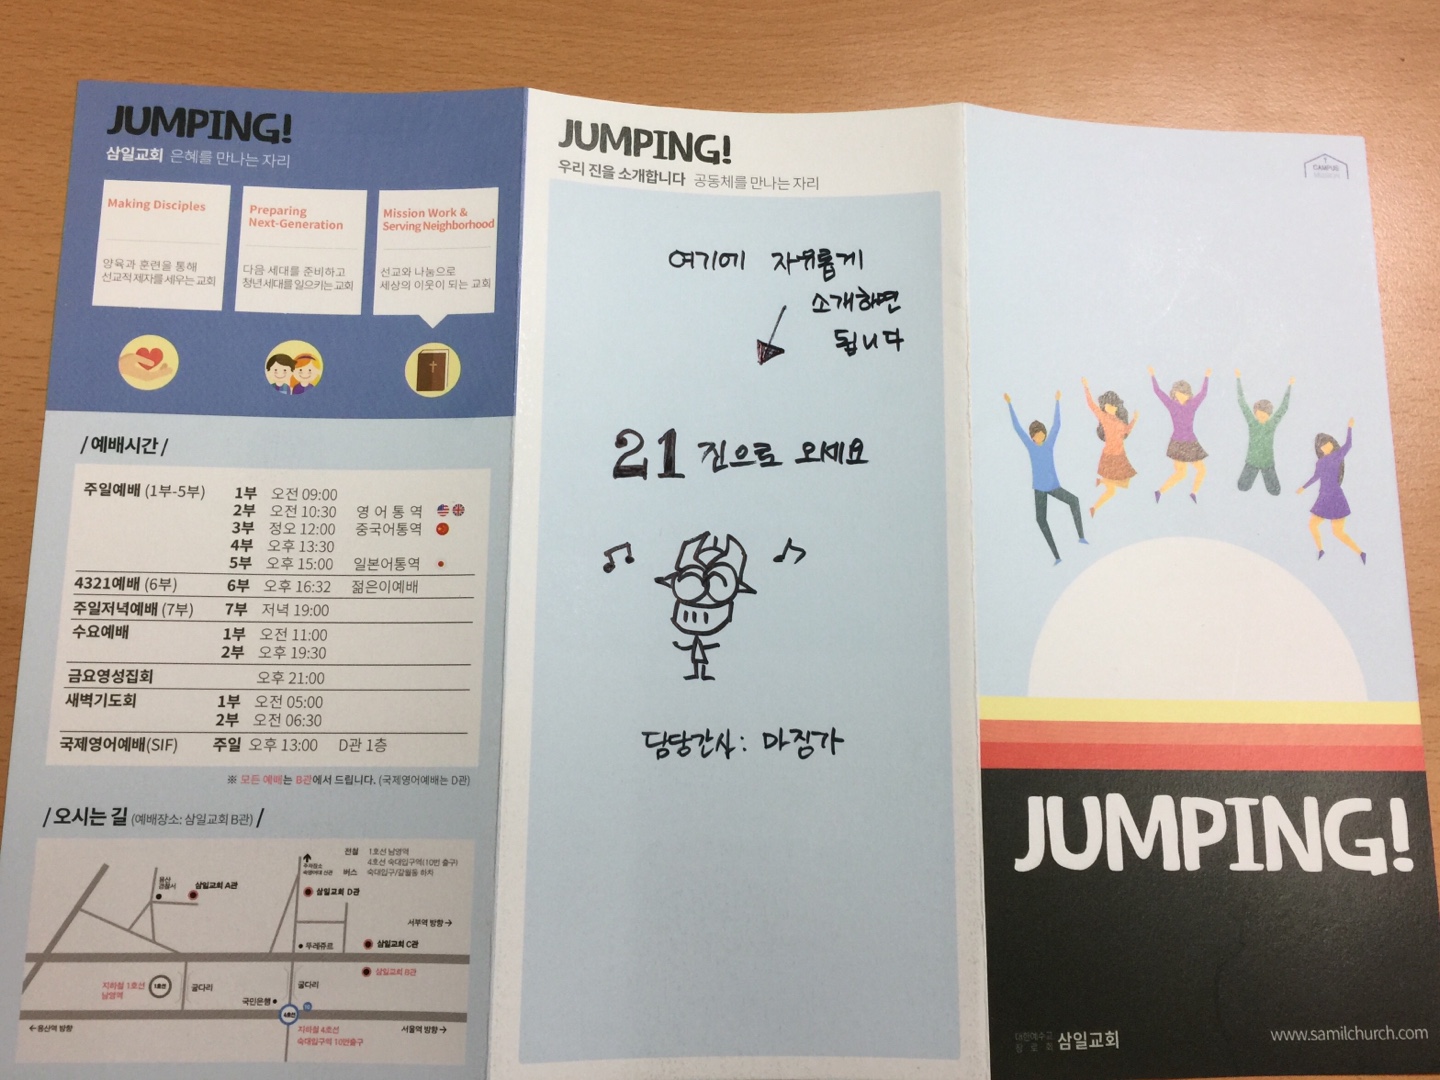 JUMPING!
삼일교회 은혜를 만나는 자리
Making Disciples
양육과 훈련을 통해
선교적 제자를 세우는 교회
Preparing
Next-Generation
다음 세대를 준비하고
청년 세대를 일으키는 교회
Mission Work &
Serving Neighborhood
선교와 나눔으로
세상의 이웃이 되는 교회
/ 예배시간 /
주일예배 (1부-5부) 1부 오전 09:00
2부 오전 10:30 영어통역
3부 정오 12:00 중국어통역
4부 오후 13:30
5부 오후 15:00 일본어통역
4321예배 (6부) 6부 오후 16:32 젊은이예배
주일저녁예배 (7부) 7부 저녁 19:00
수요예배 1부 오전 11:00
2부 오후 19:30
금요영성집회 오후 21:00
새벽기도회 1부 오전 05:00
2부 오전 06:30
국제영어예배(SIF) 주일 오후 13:00 D관 1층
※ 모든 예배는 B관에서 드립니다. (국제영어예배는 D관)
/ 오시는 길 (예배장소: 삼일교회 B관) /
전철 1호선 남영역
4호선 숙대입구역(10번 출구)
버스 숙대입구/갈월동 하차
용산
경찰서
삼일교회 A관
삼일교회 D관
서부역 방향→
뚜레쥬르
삼일교회 C관
삼일교회 B관
지하철 1호선
남영역
1호선
굴다리
굴다리
국민은행
4호선
←용산역 방향
지하철 4호선
숙대입구역 10번출구
서울역 방향→
JUMPING!
우리 진을 소개합니다 공동체를 만나는 자리
여기에 자유롭게
소개하면
됩니다
21 진으로 오세요
담당간사: 마징가
CAMPUS
JUMPING!
대한예수교
장로회 삼일교회
www.samilchurch.com